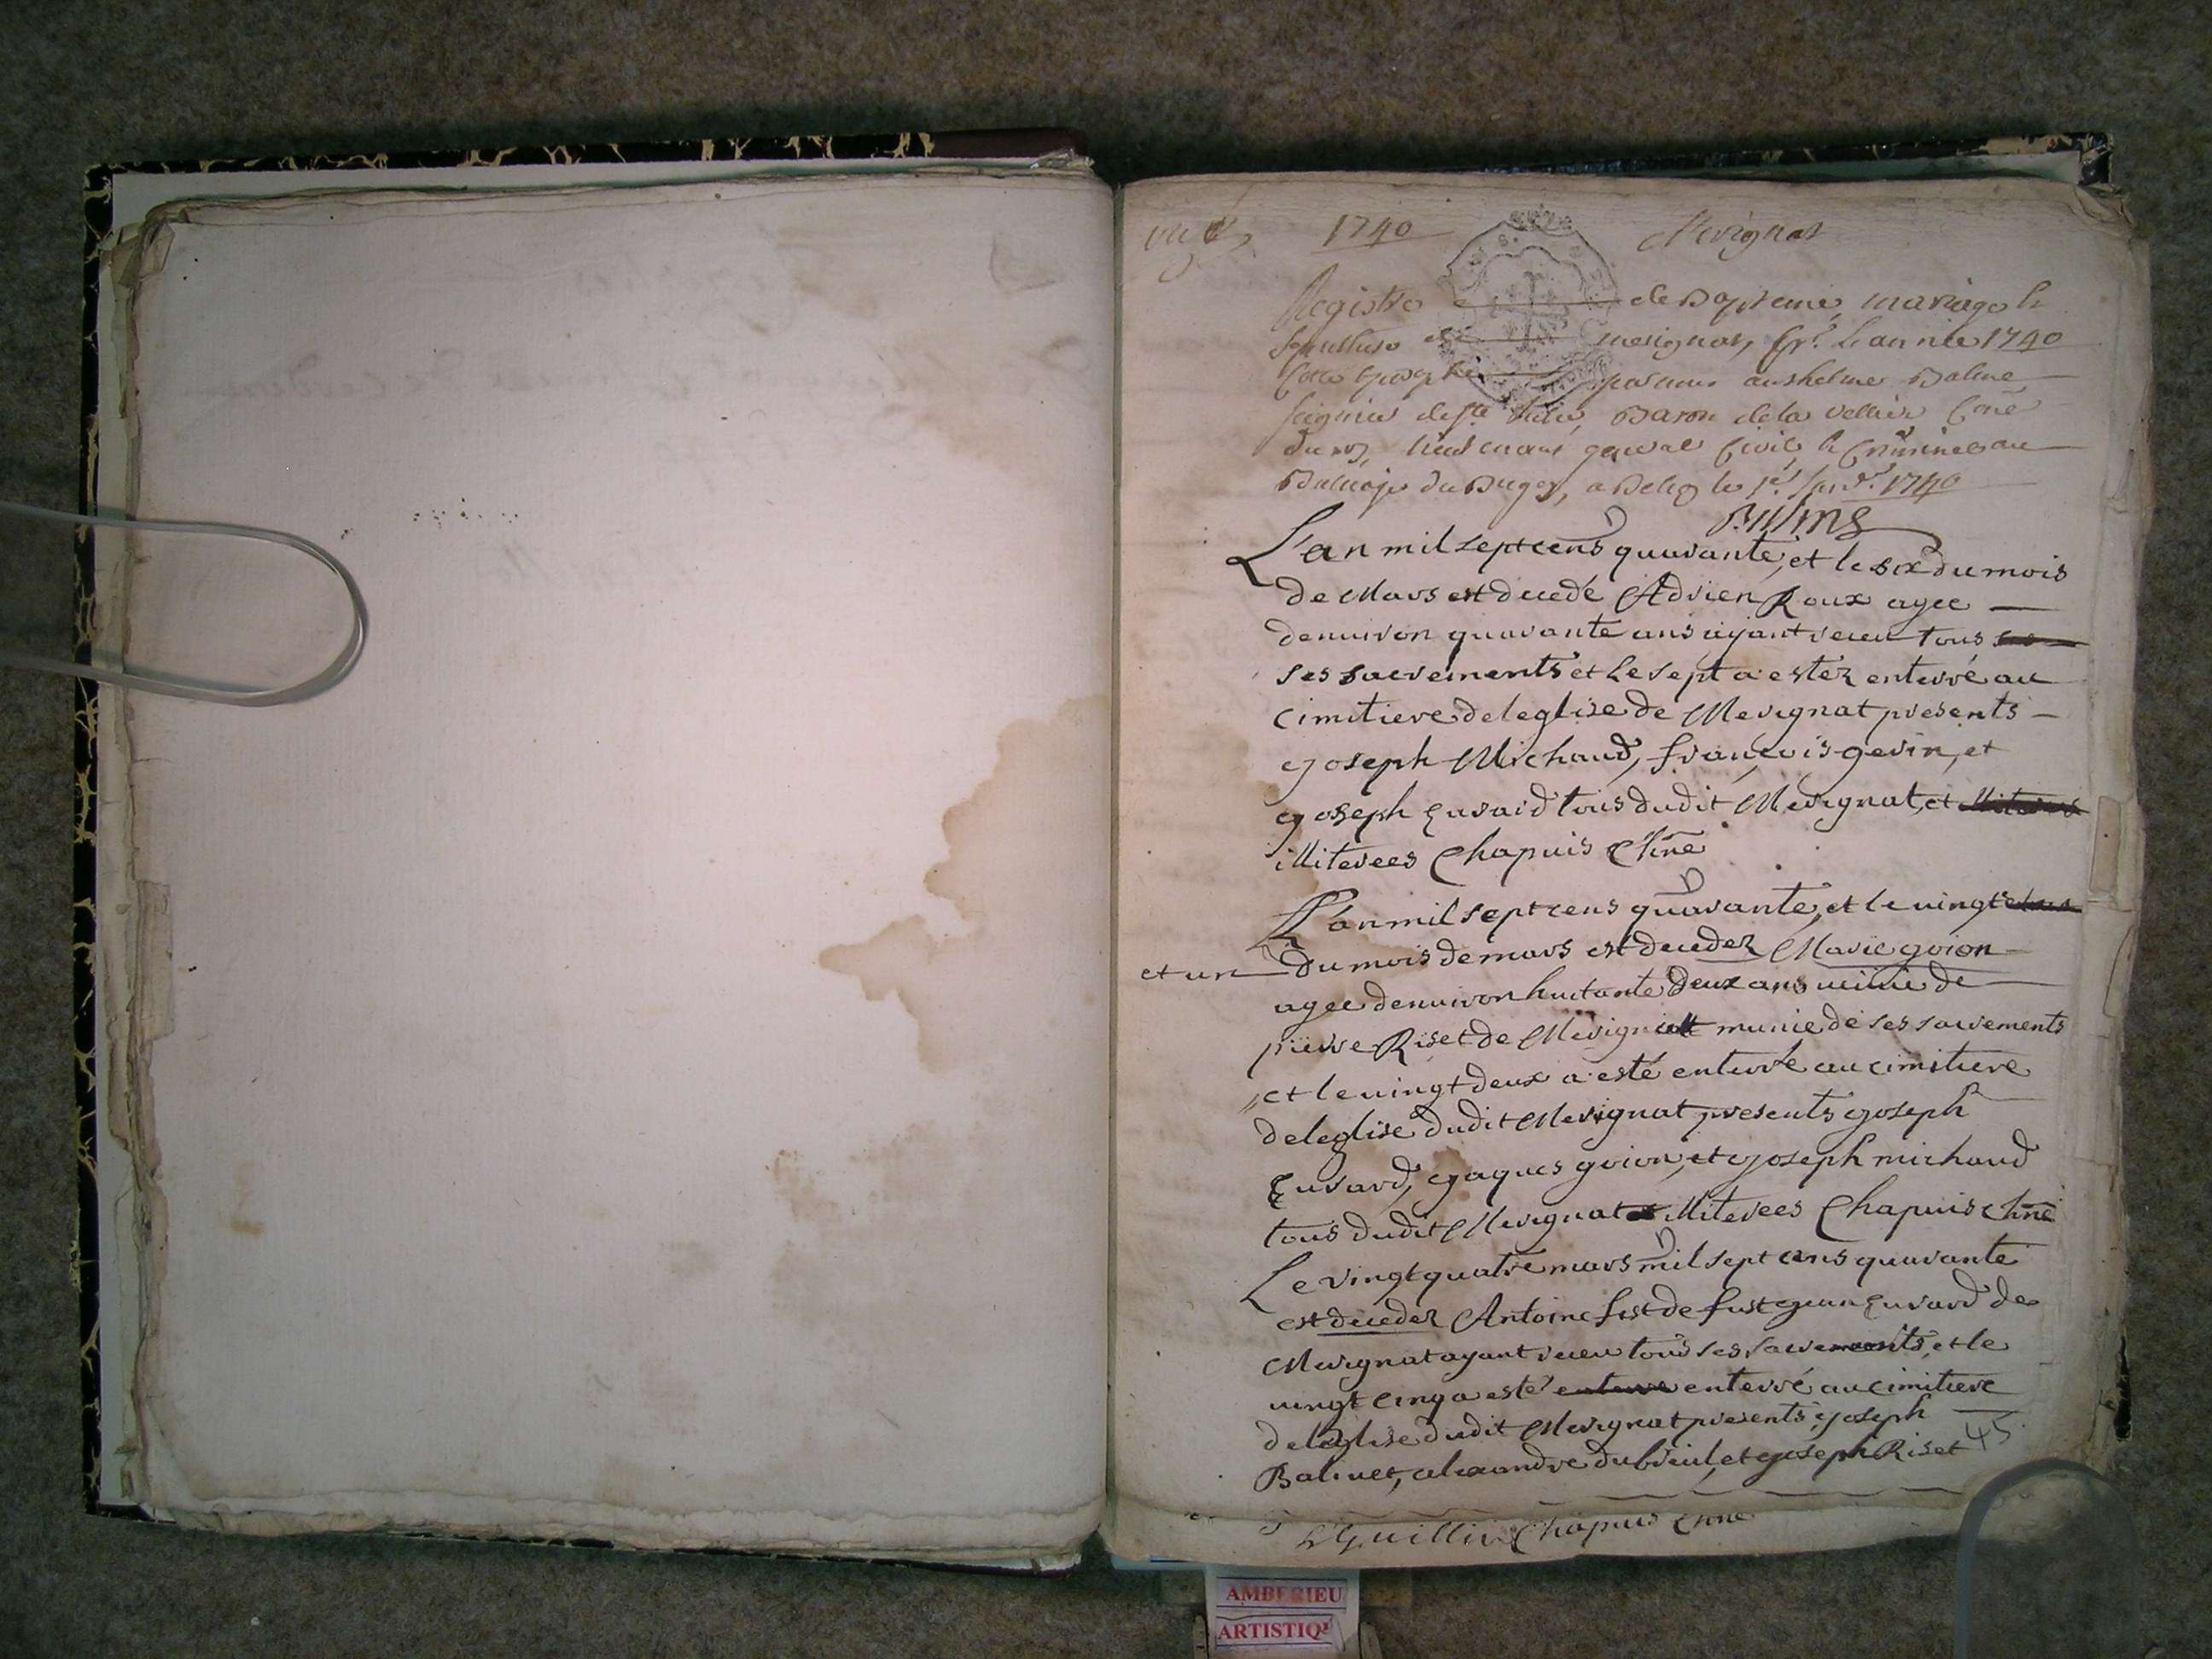 1740 Merignat
Registre de Bapteme, mariage &
Sepulture de merignat, pr. L'annee 1740
Cotte & paraphé par nous anthelme Balme
seigneur de Ste Julie, Baron de la vellier Cone
du roy, lieutenant general Civil & Criminel au
Balliage du Bugey, a Belley le 1er Janvr. 1740
Balme
L'an mil sept cens quarante, et le six du mois
de Mars est decedé Adrien Roux agee
denuiron quarante ans ayant receu tous ses
ses sacrements et le sept a estez enterré au
cimitiere de leglise de Merignat presents
Joseph Michaud, francois gerin, et
Joseph Euvard tous dudit Merignat, et illiterees
illiterees Chapuis
L'an mil sept cens quarante, et le vingt
et un du mois de mars est deceder Marie goion
agee denuiron huitante deux ans veuue de
pierre Riset de Merignat munie de ses sacrements
et le vingt deux a esté enterré au cimitiere
de leglise dudit Merignat presents Joseph
Euvard, Jaques goion, et Joseph michaud
tous dudit Merignat illiterees Chapuis
Le vingt quatre mars mil sept cens quarante
est deceder Antoine fist de fust Jean Euvard de
Merignat ayant receu tous ses sacrements, et le
vingt cinq a esté enterré enterré au cimitiere
de leglise dudit Merignat presents, Joseph
Balivet, alexandre dubreul, et Joseph Riset
45
Guillin Chapuis
AMBERIEU
ARTISTIQ